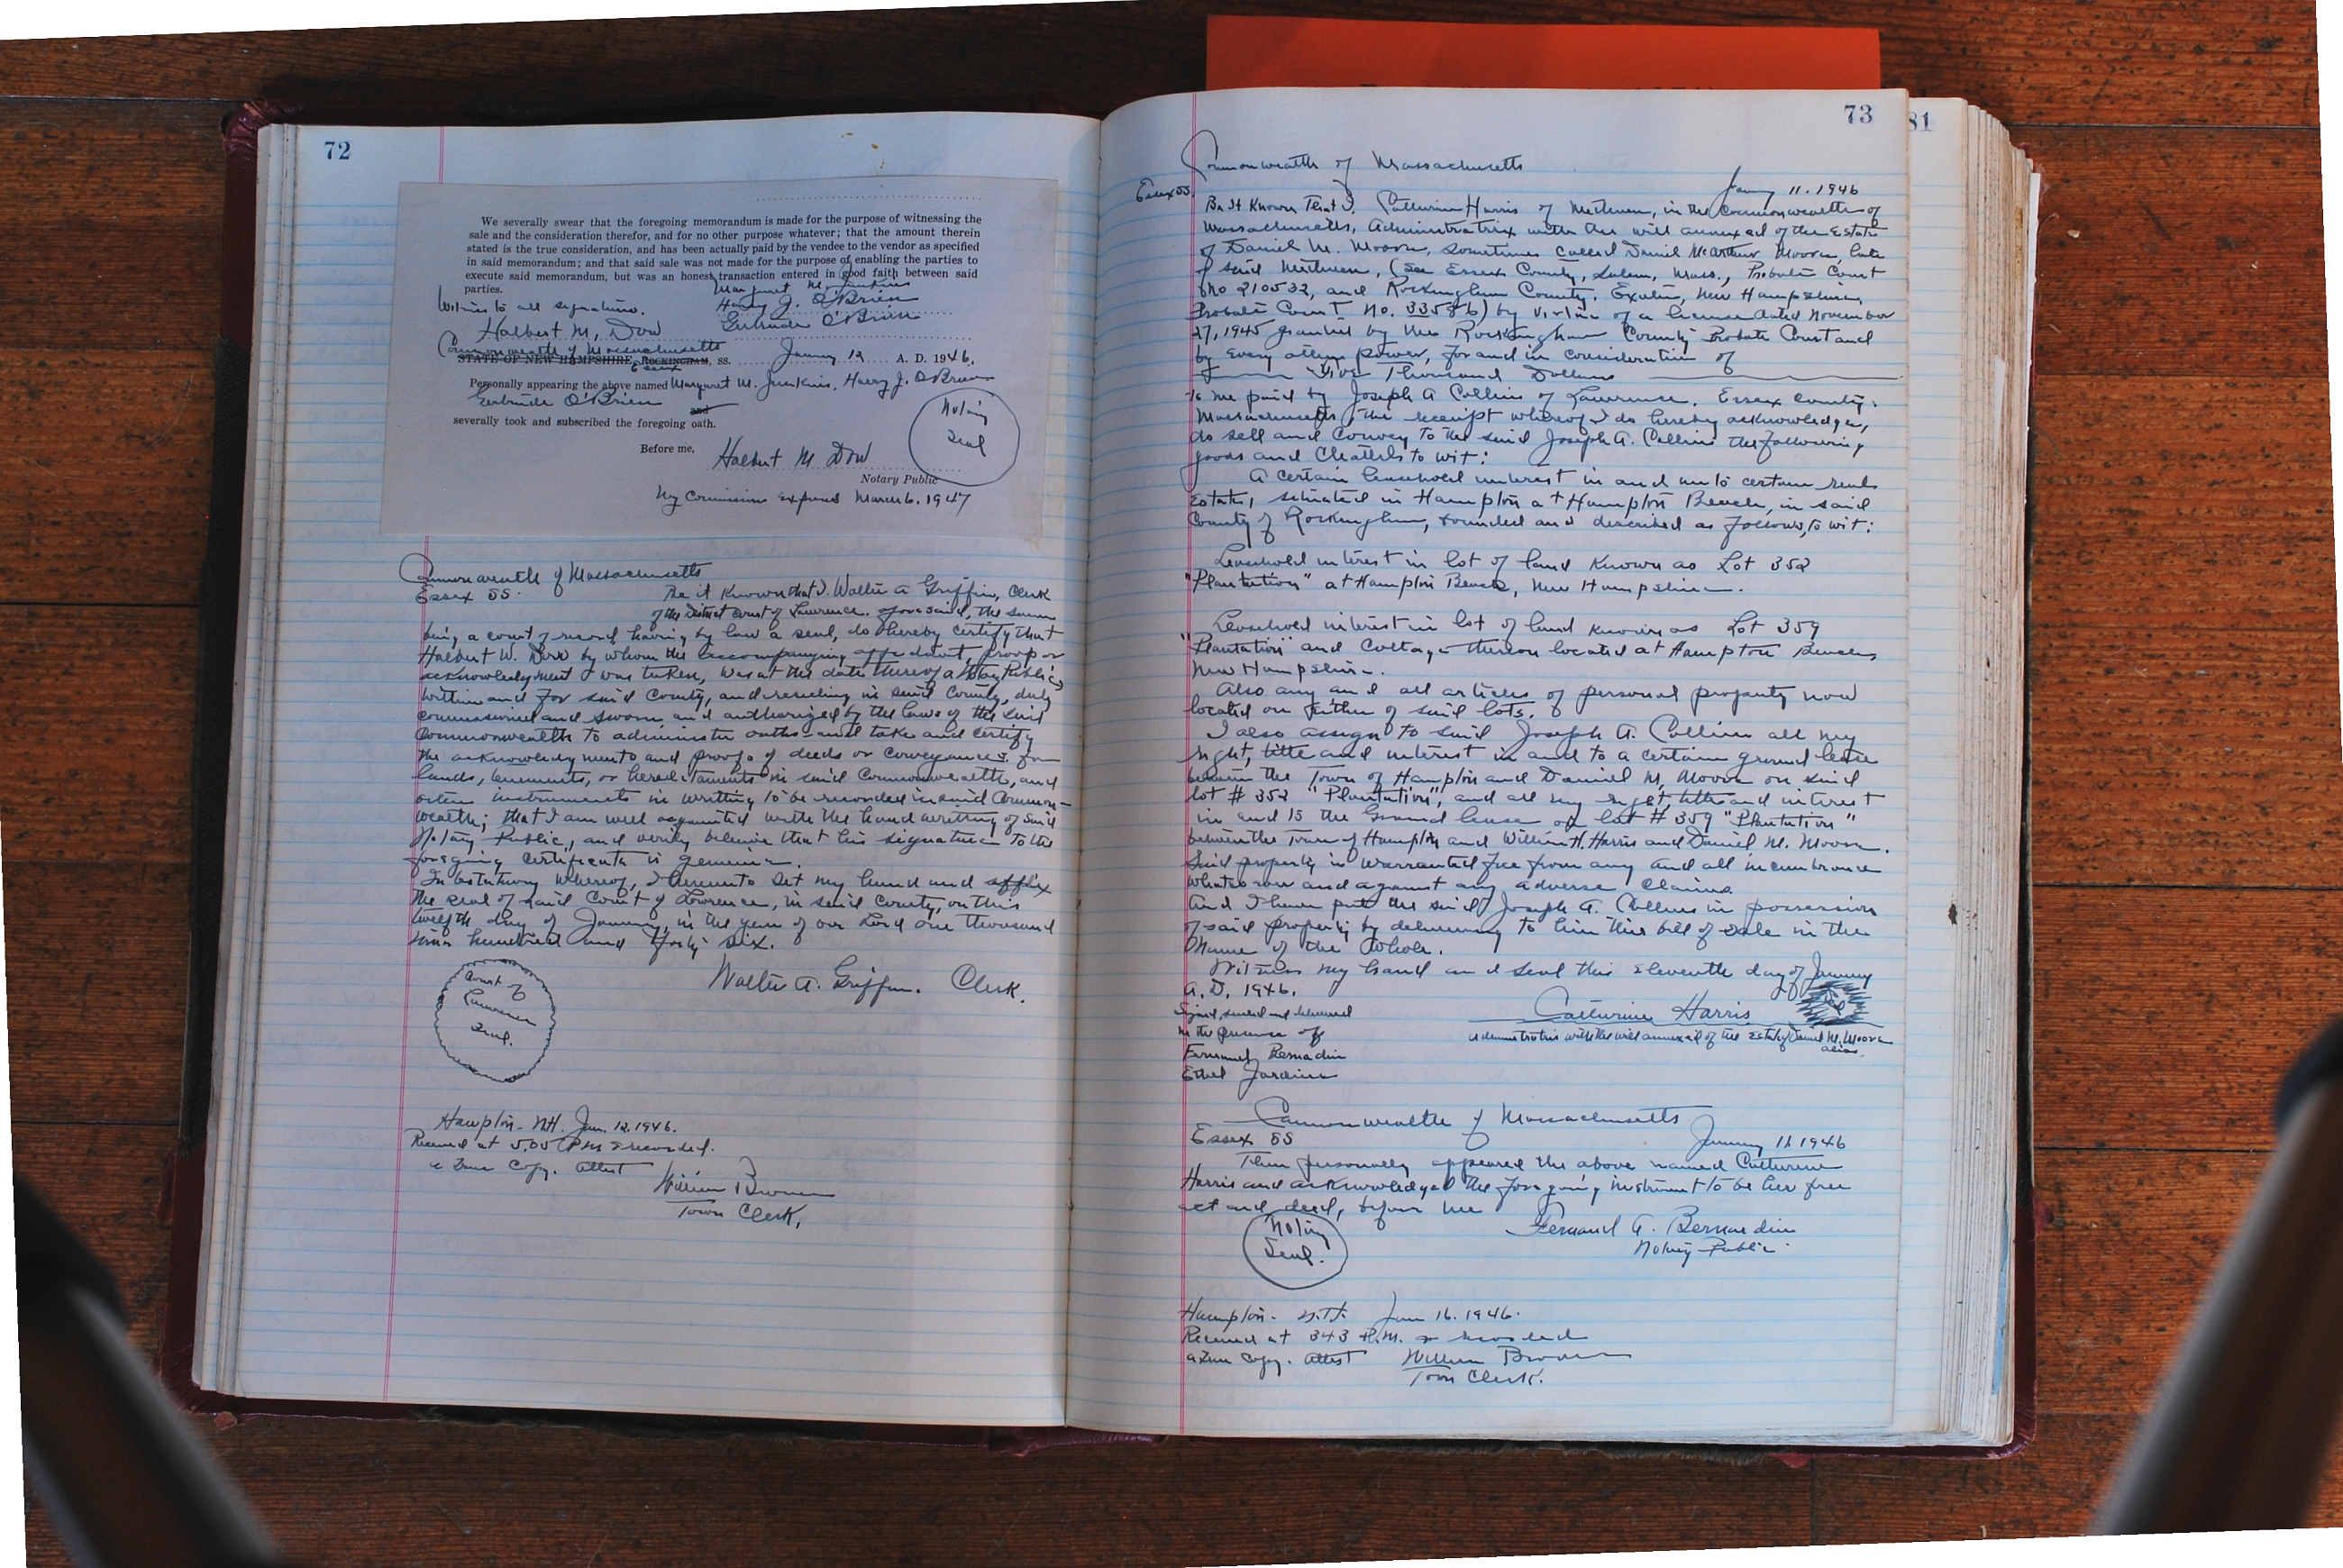 72
We severally swear that the foregoing memorandum is made for the purpose of witnessing the
sale and the consideration therefor, and for no other purpose whatever; that the amount therein
stated is the true consideration, and has been actually paid by the vendee to the vendor as specified
in said memorandum; and that said sale was not made for the purpose of enabling the parties to
execute said memorandum, but was an honest transaction entered in good faith between said
parties.
Margaret M. Junkins
Witness to all signature. Harry J. O'Brien
Halbert M. Dow Gertrude O'Brien
Commonwealth of Massachusetts
STATE OF NEW HAMPSHIRE, ROCKINGHAM, ss. January 12 A. D. 1946.
Essex
Personally appearing the above named Margaret M. Junkins, Harry J. O'Brien
Gertrude O'Brien and
severally took and subscribed the foregoing oath.
Notary
Seal
Before me, Halbert M Dow
Notary Public
My Commission Expires March 6. 1947
Commonwealth of Massachusetts
Essex SS. Be it Known that I. Walter A Griffin, Clerk
of the District Court of Lawrence. aforesaid, the same
being a court of record having by law a seal, do hereby certify that
Halbert W. Dow by whom the accompanying affidavit, proof or
acknowledgment was taken, was at the date thereof a Notary Public
within and for said County, and residing in said County, duly
commissioned and sworn and authorized by the laws of the said
Commonwealth to administer oaths and take and certify
the acknowledgments and proofs of deeds or conveyances for
lands, tenements, or hereditaments in said Commonwealth, and
other instruments in writting to be recorded in said Common-
wealth; that I am well acquainted with the hand writting of said
Notary Public, and verily believe that his signature to the
foregoing certificate is genuine.
In testimony Whereof, I hereunto set my hand and affix
the seal of said Court of Lawrence, in said County, on this
twelfth day of January, in the year of our Lord one thousand
nine hundred and forty six.
Walter A. Griffin. Clerk.
Court of
Lawrence
Seal.
Hampton- N.H. Jan. 12. 1946.
Received at 5.05 P.M & recorded.
a True Copy. Attest
William Brown
Town Clerk.
73
81
Commonwealth of Massachusetts
Essex SS. January 11. 1946
Be It Known That I. Catherine Harris of Methuen, in the Commonwealth of
Massachusetts, Administratrix with the will annexed of the Estate
of Daniel M. Moore, sometimes called Daniel McArthur Moore, late
of said Methuen, (See Essex County, Salem, Mass., Probate Court
No 210532, and Rockingham County, Exeter, New Hampshire
Probate Court No. 33586) by virtue of a license dated November
27, 1945 granted by the Rockingham County Probate Court and
by every other power, for and in consideration of
Five Thousand Dollars
to me paid by Joseph A Collins of Lawrence. Essex County.
Massachusetts, the receipt whereof I do hereby acknowledge,
do sell and Convey to the said Joseph A. Collins the following
goods and Chattels to wit:
A certain leasehold interest in and unto certain real
Estate, situated in Hampton at Hampton Beach, in said
County of Rockingham, bounded and described as follows, to wit:
Leasehold interest in lot of land Known as Lot 352
"Plantation" at Hampton Beach, New Hampshire.
Leasehold interest in lot of land known as Lot 359
"Plantation" and Cottage thereon located at Hampton Beach,
New Hampshire.
Also any and all articles of personal property now
located on either of said lots.
I also assign to said Joseph A. Collins all my
right, title and interest in and to a certain ground lease
between the Town of Hampton and Daniel M, Moore on said
lot # 352 "Plantation", and all my right, title and interest
in and to the Ground lease on lot # 359 "Plantation"
between the Town of Hampton and William H. Harris and Daniel M. Moore.
Said property is warranted free from any and all incumbrance
whatsoever and against any adverse claims
And I have put the said Joseph A. Collins in possession
of said property by delivering to him this bill of sale in the
Name of the Whole.
Witness my hand and seal this Eleventh day of January
A. D. 1946.
Catherine Harris Seal
Administratrix with the will annexed of the Estate of Daniel M. Moore
alias.
Signed, sealed and delivered
in the presence of
Fernand Bernardin
Ethel Jardine
Commonwealth of Massachusetts
Essex SS January 11 1946
Then personally appeared the above named Catherine
Harris and acknowledged the foregoing instrument to be her free
act and deed, before me
Fernand A. Bernardin
Notary Public
Notary
Seal.
Hampton- N.H. Jan 16. 1946.
Received at 3 43 P.M. & recorded
a True Copy. Attest William Brown
Town Clerk.